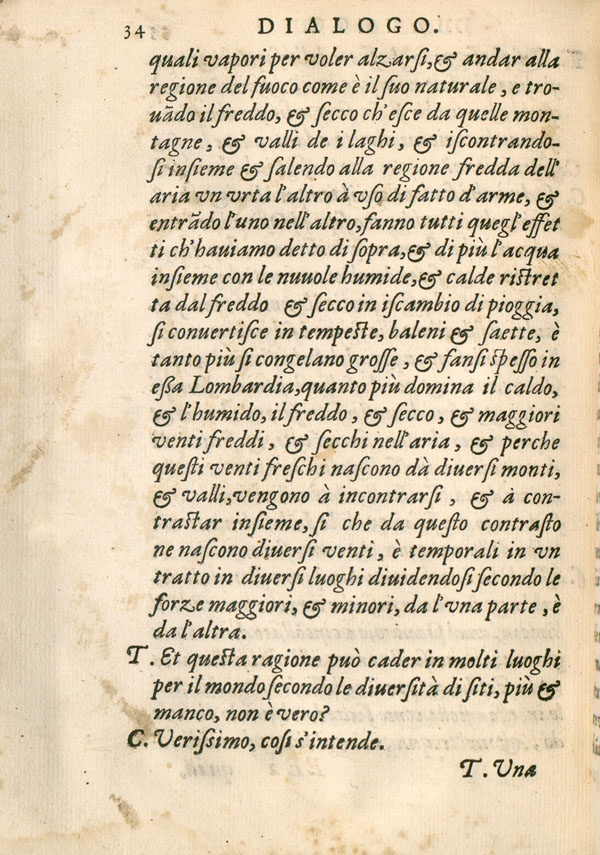 34 DIALOGO.
quali vapori per voler alzarsi, & andar alla
regione del fuoco come è il suo naturale, e tro-
uādo il freddo, & secco ch'esce da quelle mon-
tagne, & valli de i laghi, & iscontrando-
si insieme & salendo alla regione fredda dell'
aria vn vrta l'altro à vso di fatto d'arme, &
entrādo l'uno nell'altro, fanno tutti quegl'effet
ti ch'hauiamo detto di sopra, & di più l'acqua
insieme con le nuuole humide, & calde ristret
ta dal freddo & secco in iscambio di pioggia,
si conuertisce in tempeste, baleni & saette, è
tanto più si congelano grosse, & fansi spesso in
essa Lombardia, quanto più domina il caldo,
& l'humido, il freddo, & secco, & maggiori
venti freddi, & secchi nell'aria, & perche
questi venti freschi nascono dà diuersi monti,
& valli, vengono à incontrarsi, & à con-
trastar insieme, si che da questo contrasto
ne nascono diuersi venti, è temporali in vn
tratto in diuersi luoghi diuidendosi secondo le
forze maggiori, & minori, da l'vna parte, è
da l'altra.
T. Et questa ragione può cader in molti luoghi
per il mondo secondo le diuersità di siti, più &
manco, non è vero?
C. Verissimo, cosi s'intende.
T. Vna